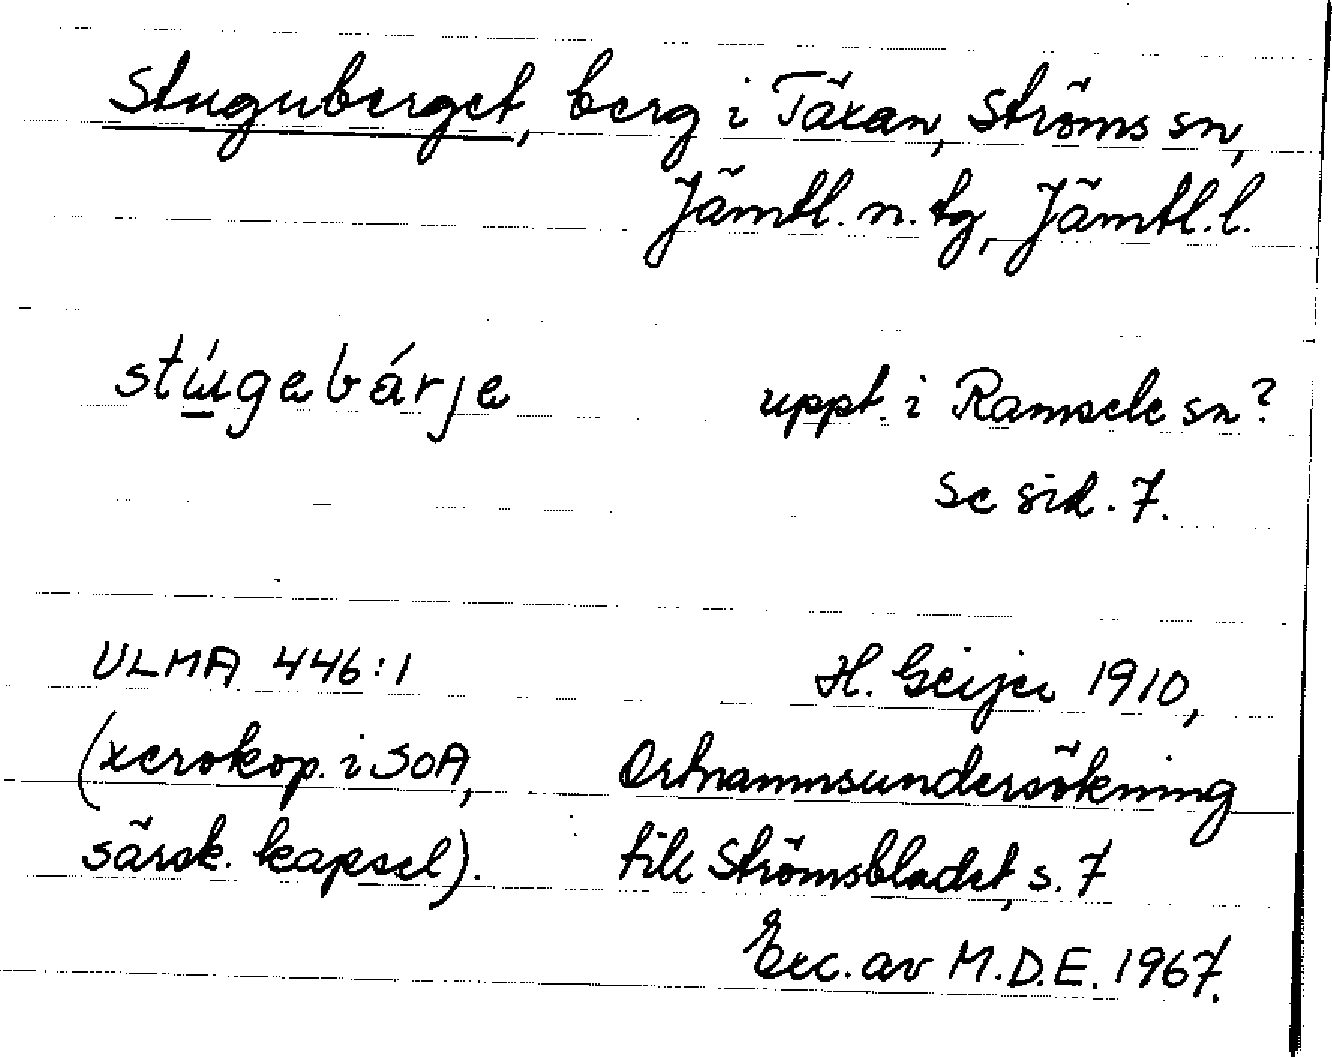 Stuguberget, berg i Täxan, Ströms sn,
Jämtl. n. tg, Jämtl.l.
stúgebárje uppt. i Ramsele sn?
Se sid. 7.
ULMA 446:1 H. Geijer 1910,
(xerokop. i SOA, Ortnamnsundersökning
särsk. kapsel). till Strömsbladet, s. 7
Exc. av M.D.E. 1967.